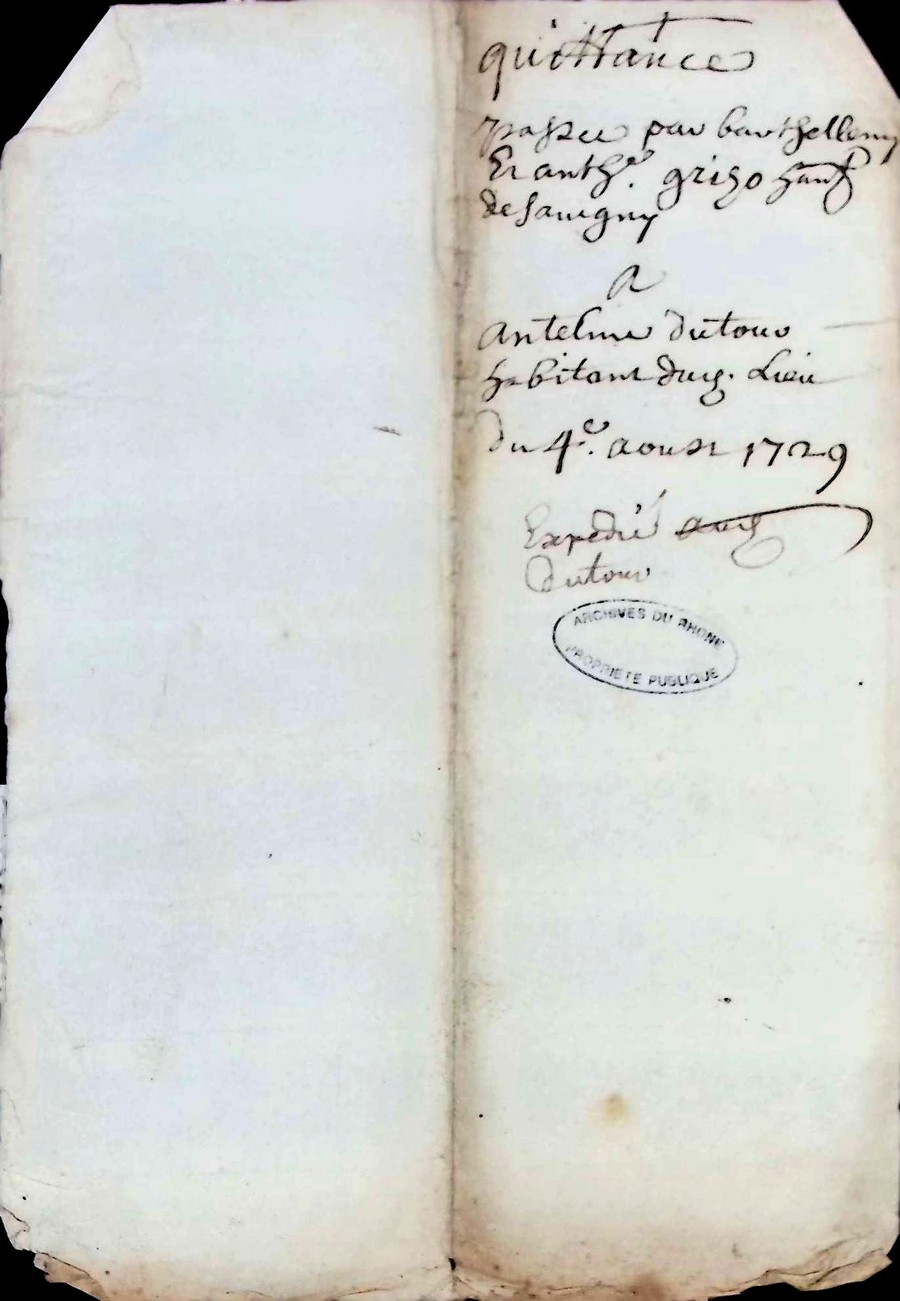 quittance
passee par barthellemy
Et anthe. grigo habt
de Savigny
A
antelme dutour
habitant dud. Lieu
du 4e. aoust 1729
Expedié aud
dutour
ARCHIVES DU RHONE
PROPRIETE PUBLIQUE